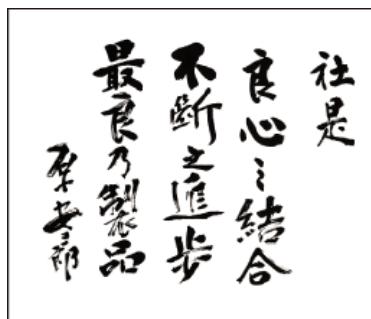 社是
良心之結合
不断之進歩
最良乃製品
原安三郎